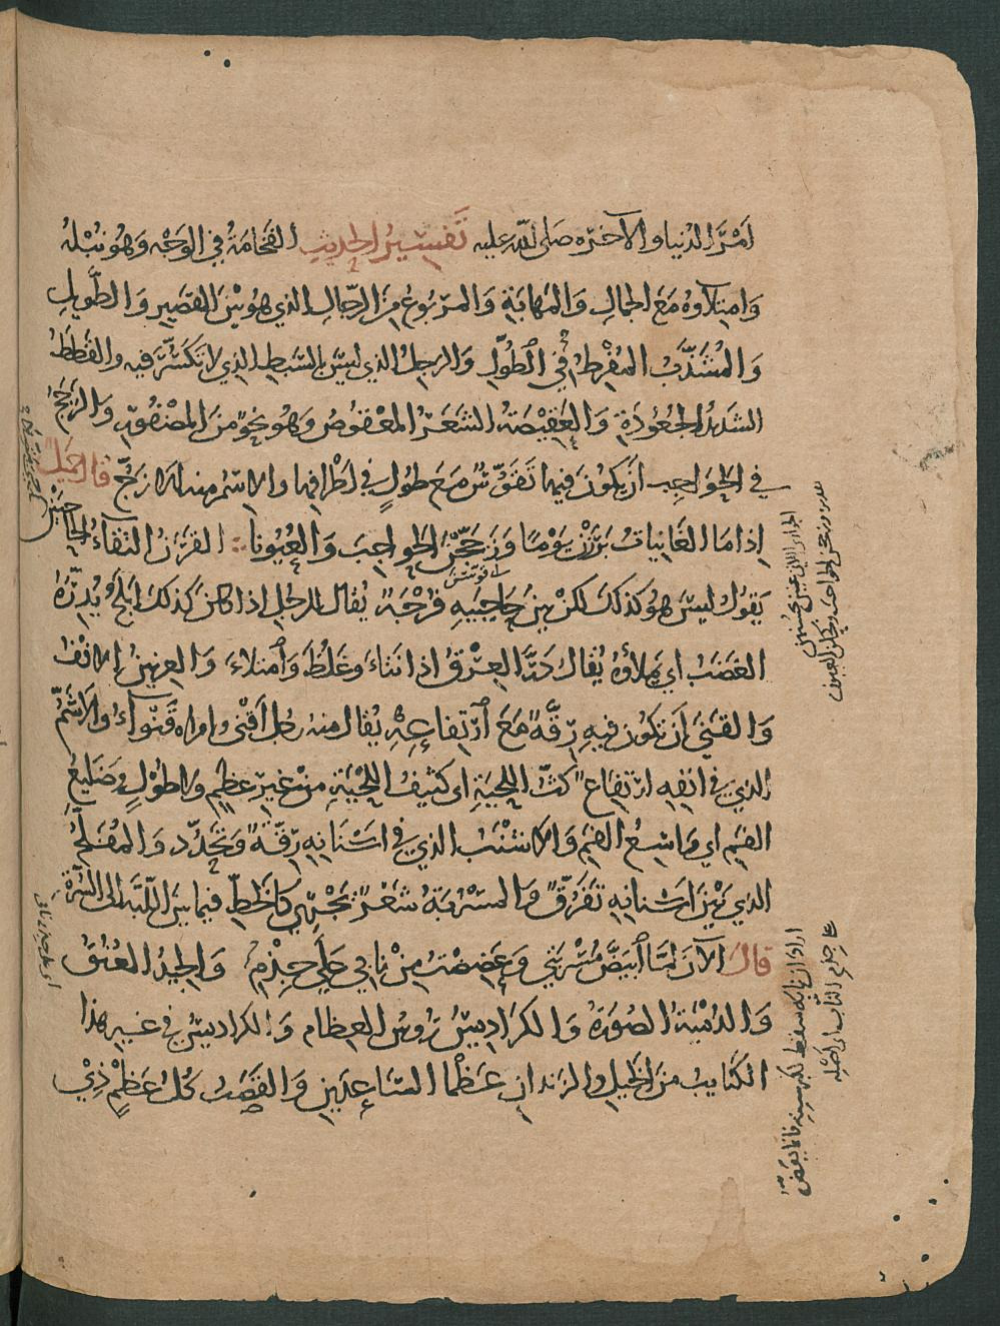 امر الدنيا والآخرة صلى الله عليه تَفسِيرُ الحديثِ الفَخامَةُ في الوَجْه وَهُو نُبْلُهُ
وَامتِلاوهُ مَعَ الجمالِ وَالمَهابَةِ وَالمَرْبُوعُ مِنَ الرّجالِ الذي هُو بَيْنَ القَصيرِ وَالطَّويلِ
وَالمُشَذَّبُ المُفْرِطُ في الطُولِ وَالرجِلُ الذي ليسَ بالسَّبطِ الذي لا تَكَسُّرَ فيه والقَطَطُ
الشديدُ الجُعُودَةِ وَالعَقِيْصَةُ الشعَرُ المَعْقوصُ وَهُو نحوٌ مِنَ المَضْفُورِ وَالزجَجُ
في الحواجِبِ ان يكُونَ فيها تَقَوُّسٌ مَعَ طُولٍ في اطرافِها والاسْمُ منه الازَجُّ قال جميل
اِذا ما الغَانِياتُ بَرَزْنَ يَوْمًا وَزَجَّجْنَ الحواجِبَ وَالعُيُونا القَرَنُ التقاءُ الحاجبَيْنِ
يَقولُ ليسَ هُو كذلكَ لكنْ بينَ حاجِبَيهِ فُرْجَةٌ يُقالُ للرجلِ اذا كانَ كذلكَ ابلَجُ يُدِرُّهُ
الغَضَبُ اي يملاؤهُ يُقالُ دَرَّ العِرْقُ اذا نَتاءَ وغَلُظَ وَامتلاءَ وَالعِرنينُ الانْفُ
وَالقَنى أن تكونَ فيهِ رِقَّةٌ مَعَ ارْتِفاعِهِ يُقالُ منه رجُل اقنى وامراة قَنْوآءُ والاشَمُّ
الذي في انفِه ارتفاع كثُّ اللِحيةِ اي كثيفُ اللِحْيَةِ مِنْ غيرِ عظمٍ ولا طُوْلٍ ضَليعُ
الفَمِ اي واسِعُ الفَمِ وَالاشنَبُ الذي في اسنانِهِ رِقَّةٌ وَتحدُّد وَالمُفَلَّجُ
الذي بَيْنَ اسْنانِهِ تَفرُّقٌ وَالمسْرُبَةُ شَعَرٌ يَجْري كالخَطِّ فيما بين اللَّبَّة الى السُّرَّةِ
قالَ الآنَ لمّا ابيَضَّ مَسْرُبَتي وَعَضِضْتُ مِنْ نابي على جِذْمِ وَالجِيدُ العُنُقُ
وَالدُمْيَةُ الصُورَةُ وَالكَرَادِيسُ رُوسُ العِظام وَالكراديسُ في غيرِ هذا
الكَتايبُ مِنَ الخيلِ والزندانِ عَظْما السّاعِدَينِ وَالقَصَبُ كُلُّ عَظْمٍ ذِي